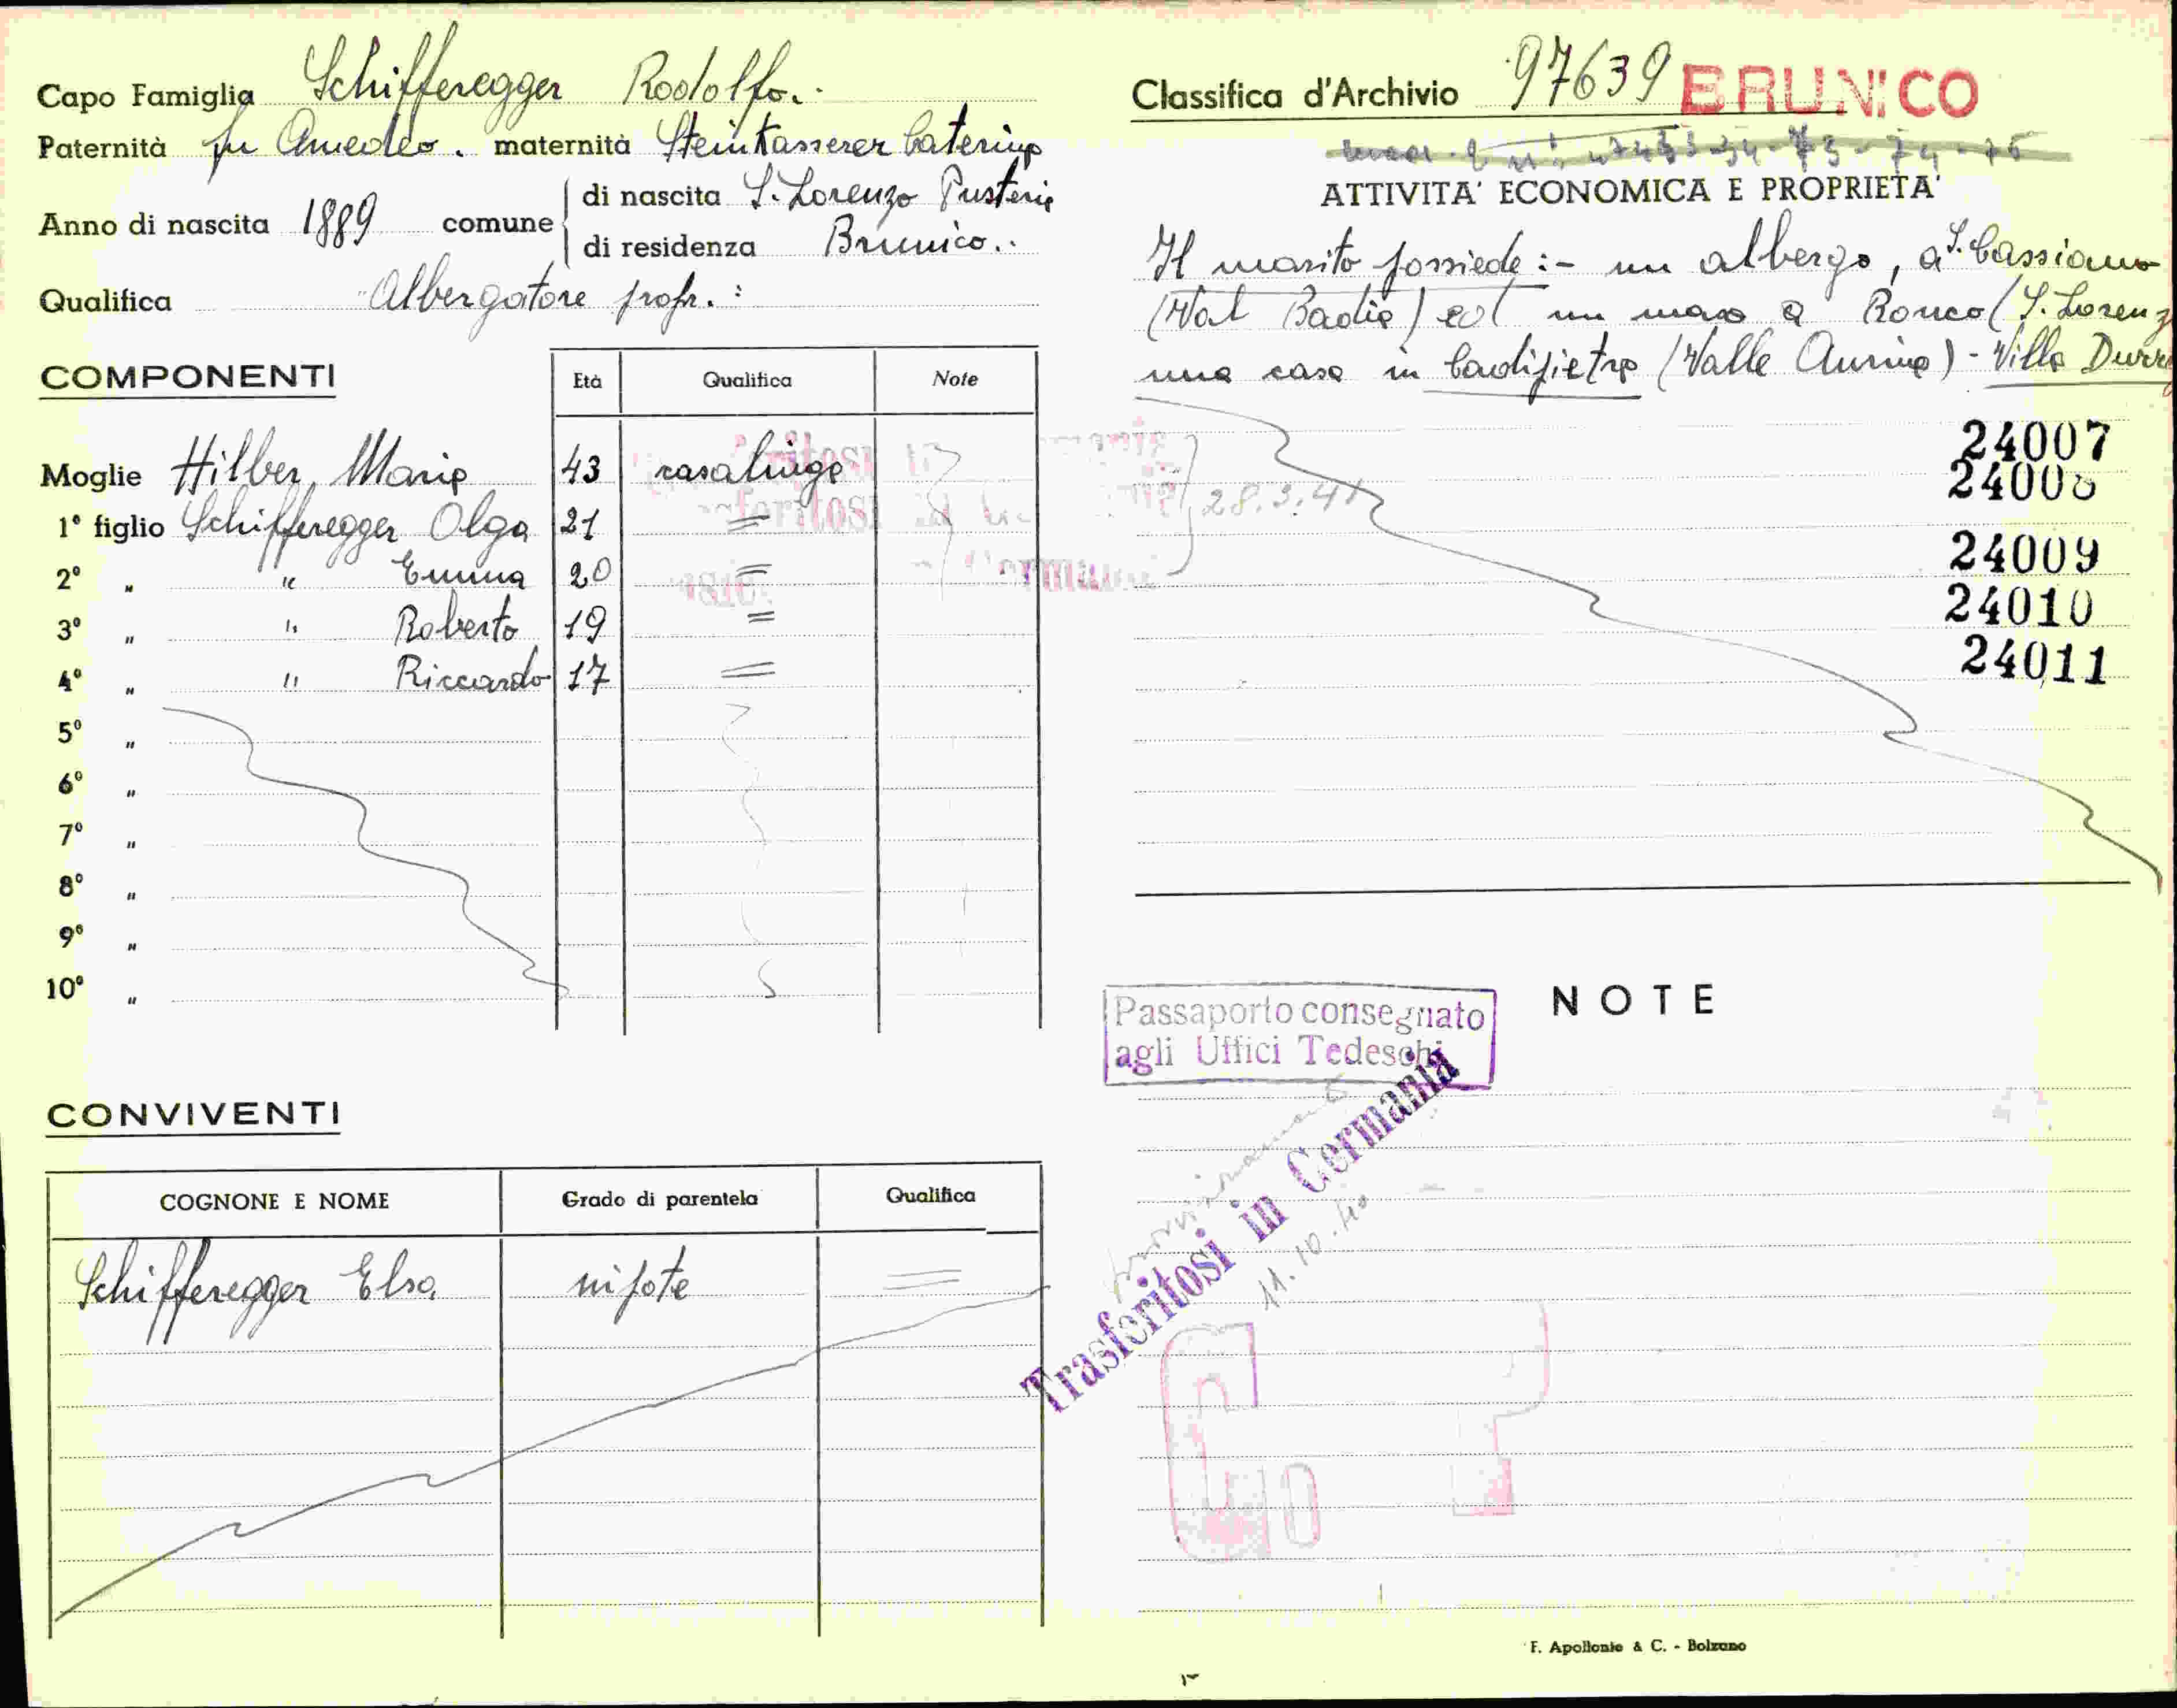 Capo Famiglia Schifferegger Rodolfo.
Paternità fu Amedeo. maternità Steinkasserer Caterina
Anno di nascita 1889 comune di nascita S. Lorenzo Pusteria
di residenza Brunico..
Qualifica Albergatore propr. :
COMPONENTI Età Qualifica Note
Moglie Hilber Maria 43 casalinga
1° figlio Schifferegger Olga 21 =
2° „ " Emma 20 =
3° „ " Roberto 19 =
4° „ " Riccardo 17 =
5° „
6° „
7° „
8° „
9° „
10° „
CONVIVENTI
COGNONE E NOME Grado di parentela Qualifica
Schifferegger Elsa nipote =
Classifica d'Archivio 97639 BRUNICO
ATTIVITA' ECONOMICA E PROPRIETA'
Il marito possiede :- un albergo, a S. Cassiano
(Val Badia) ed un maso a Ronco (S. Lorenz
una casa in Cadipietra (Valle Aurina) - Villa
28.3.41
24007
24008
24009
24010
24011
NOTE
Passaporto consegnato
agli Uffici Tedeschi
Trasferitosi in Germania
11.10.40
F. Apollonio & C. - Bolzano